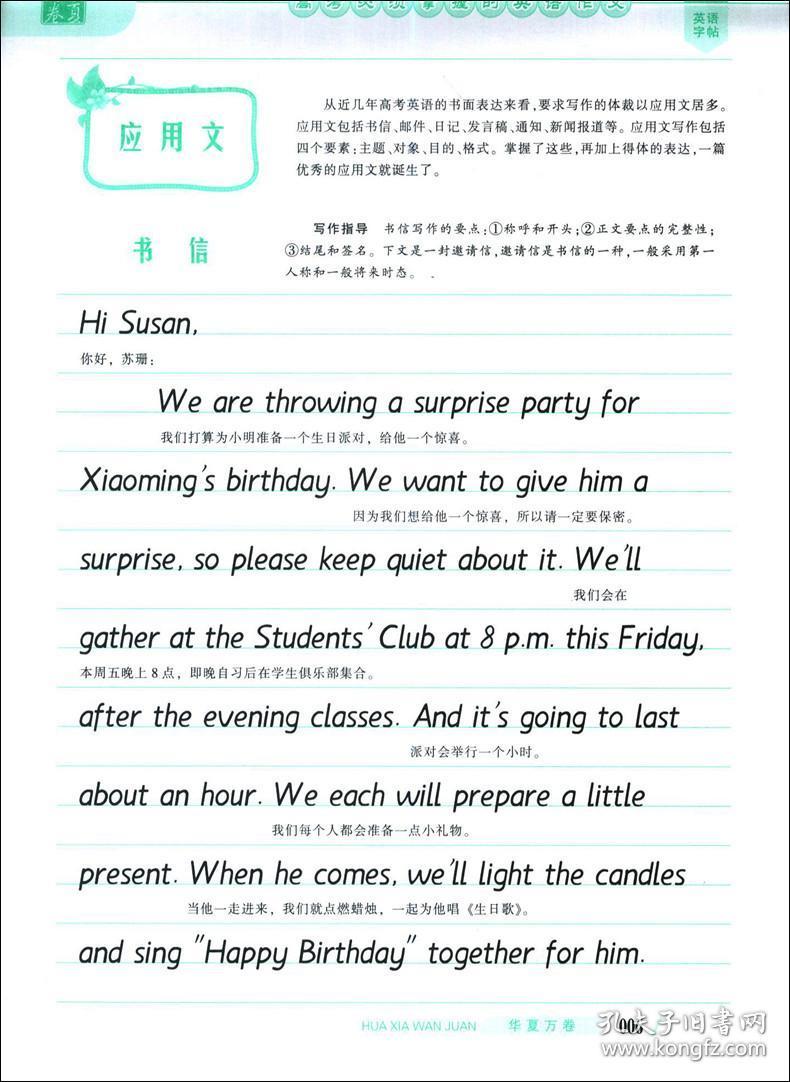 高考必须掌握的英语作文
英语
字帖
应用文
从近几年高考英语的书面表达来看,要求写作的体裁以应用文居多。
应用文包括书信、邮件、日记、发言稿、通知、新闻报道等。应用文写作包括
四个要素:主题、对象、目的、格式。掌握了这些,再加上得体的表达,一篇
优秀的应用文就诞生了。
书信
写作指导 书信写作的要点:①称呼和开头;②正文要点的完整性;
③结尾和签名。下文是一封邀请信,邀请信是书信的一种,一般采用第一
人称和一般将来时态。
Hi Susan,
你好,苏珊:
We are throwing a surprise party for
我们打算为小明准备一个生日派对,给他一个惊喜。
Xiaoming's birthday. We want to give him a
因为我们想给他一个惊喜,所以请一定要保密。
surprise, so please keep quiet about it. We'll
我们会在
gather at the Students' Club at 8 p.m. this Friday,
本周五晚上8点,即晚自习后在学生俱乐部集合。
after the evening classes. And it's going to last
派对会举行一个小时。
about an hour. We each will prepare a little
我们每个人都会准备一点小礼物。
present. When he comes, we'll light the candles
当他一走进来,我们就点燃蜡烛,一起为他唱《生日歌》。
and sing "Happy Birthday" together for him.
HUA XIA WAN JUAN 华夏万卷
孔夫子旧书网
www.kongfz.com